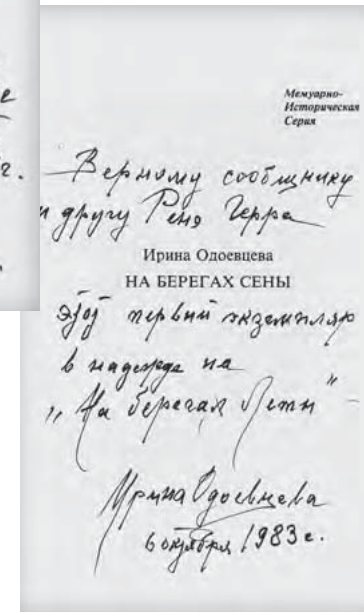 е
г.
Мемуарно-
Историческая
Серия
Верному сообщнику
и другу Ренэ Герра
Ирина Одоевцева
НА БЕРЕГАХ СЕНЫ
этот первый экземпляр
в надежде на
„На берегах Леты"
Ирина Одоевцева
6 октября 1983 г.